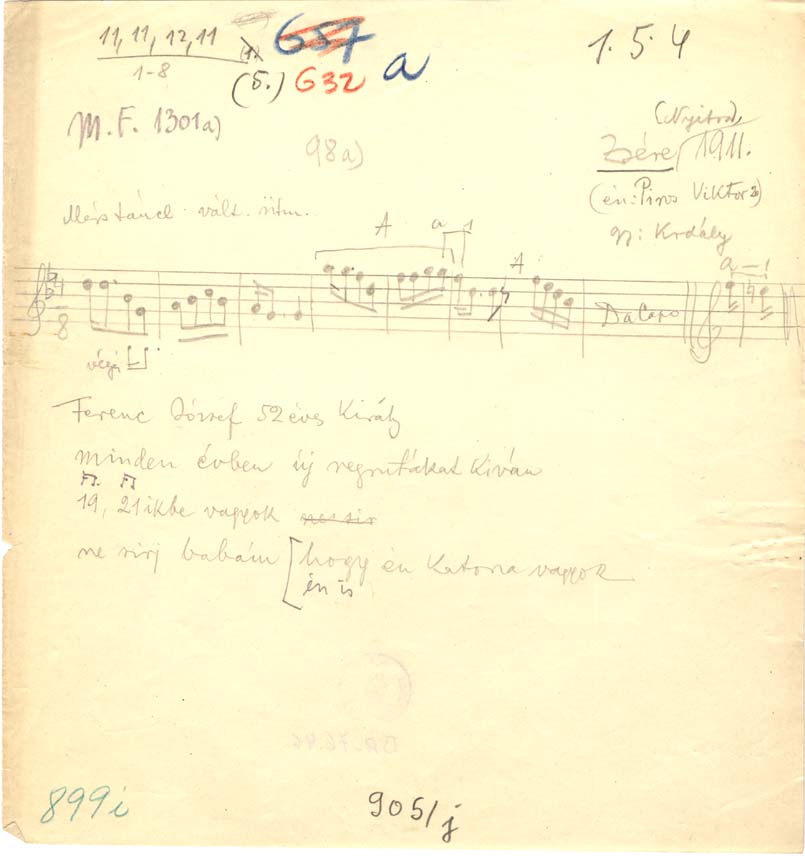 11, 11, 12, 11
1-8
(1.)
657
(5.) 632 a
1. 5. 4
M. F. 1301a)
98a)
(Nyitra)
Zsére 1911.
(én: Piros Viktor 20)
gy: Kodály
Mérs. táncl. vált. ritm.
A a 1 A a 1
4
8
Da Capo
végig
Ferenc József 52 éves Király
minden évben új regrutákat Kíván
19, 21 ikbe vagyok
ne sirj babám [hogy én Katona vagyok
én is
BR. 7646
899i
905/j